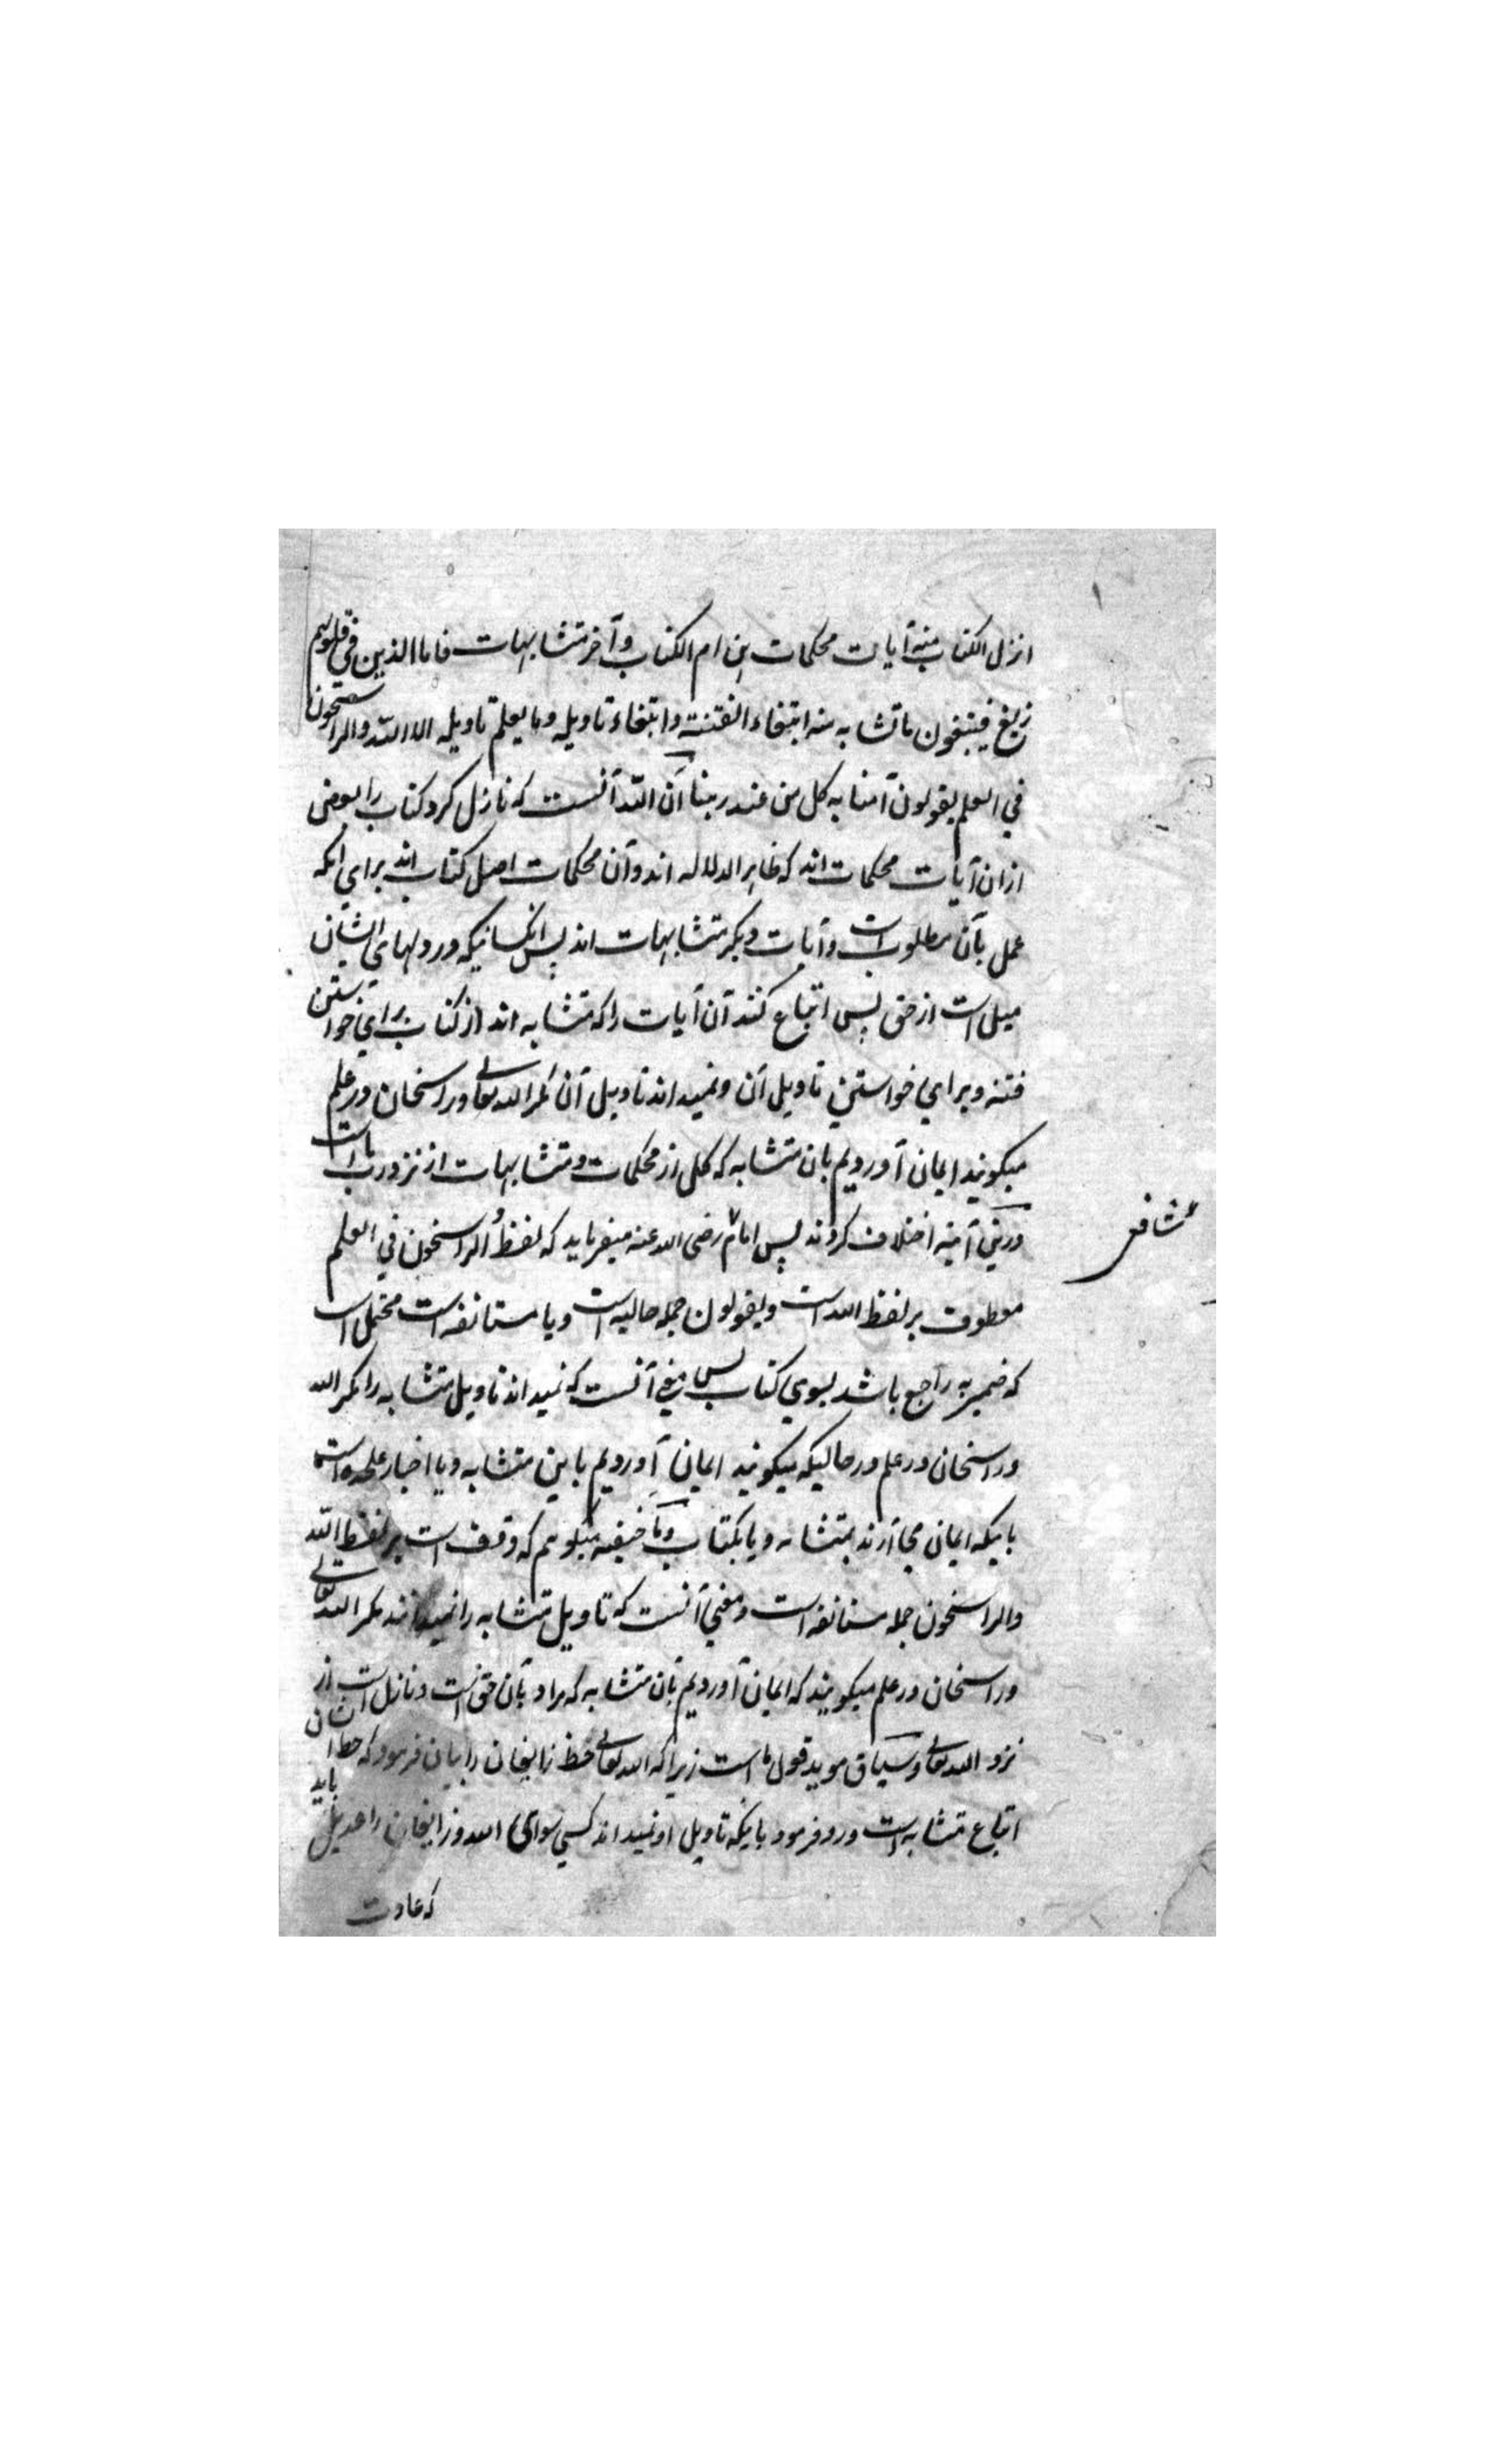 انزل الکتاب منه آیات محکمات هن ام الکتاب و آخر متشابهات فاما الذین فی قلوبهم
زیغ فیتبعون ما تشابه منه ابتغاء الفتنة و ابتغاء تاویله وما یعلم تاویله الا الله و الراسخون
فی العلم یقولون آمنا به کل من عند ربنا آن الله آنست که نازل کرد کتاب را بعضی
ازان آیات محکمات اند که ظاهر الدلاله اند و آن محکمات اصل کتاب اند برای انکه
عمل بآن مطلوب است و آیات دیکر متشابهات اند پس انکسانیکه در دلهای ایشان
میل است از حق پس اتباع کنند آن آیات را که متشابه اند از کتاب برای خواستن
فتنه و برای خواستن تاویل آن و نمیداند تاویل آن مکر الله تعالی و راسخان در علم
میکویند ایمان آوردیم بان متشابه که کل از محکمات و متشابهات از نزد رب ما است
درین آیه اختلاف کردند پس امام رضی الله عنه میفرماید که لفظ و الراسخون فی العلم
شافعی
معطوف بر لفظ الله است و یقولون جمله حالیه است و یا مستانفه است محتمل است
که ضمیر به راجع باشد بسوی کتاب پس معنی آنست که نمیداند تاویل متشابه را مکر الله
و راسخان در علم در حالیکه میکویند ایمان آوردیم باین متشابه و یا اخبار علحده است
باینکه ایمان می آرند بمتشابه و یا بکتاب و ما حنیفیه میکوییم که وقف است بر لفظ الله
و الراسخون جمله مستانفه است و معنی آنست که تاویل متشابه را نمیدانند مکر الله تعالی
و راسخان در علم میکویند که ایمان آوردیم بآن متشابه که مراد بآن حق است و نازل است از
نزد الله تعالی و سیاق موید قول ما است زیرا که الله تعالی حظ زایغان را بیان فرمود که حظ ایشان
اتباع متشابه است و رد فرمود باینکه تاویل او نمیداند کسی سوای الله و زایغان را عدیل باید
که عادت